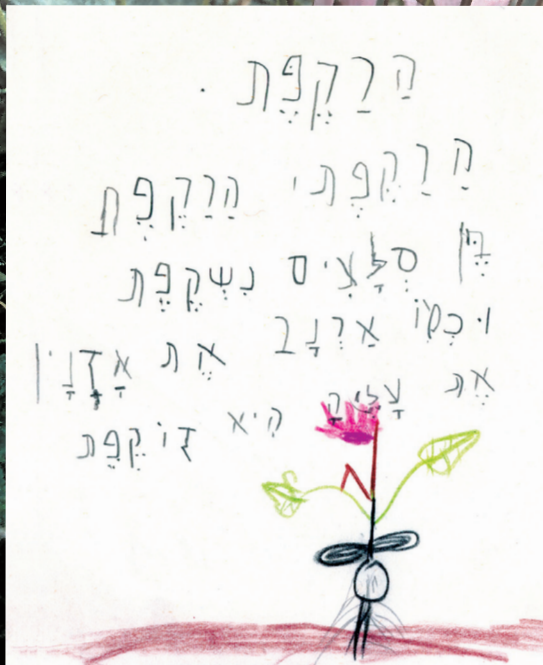 הַרַקֶפֶת.
הַרַקֶפֶת, הַרַקֶפֶת
בֶּין סְלָעִים נִשְקֶפֶת
וּכְמוֹ אַרְנָב אֶת אָזְנָיו
אֶת עָלֶיהָ הִיא זוֹקֶפֶת